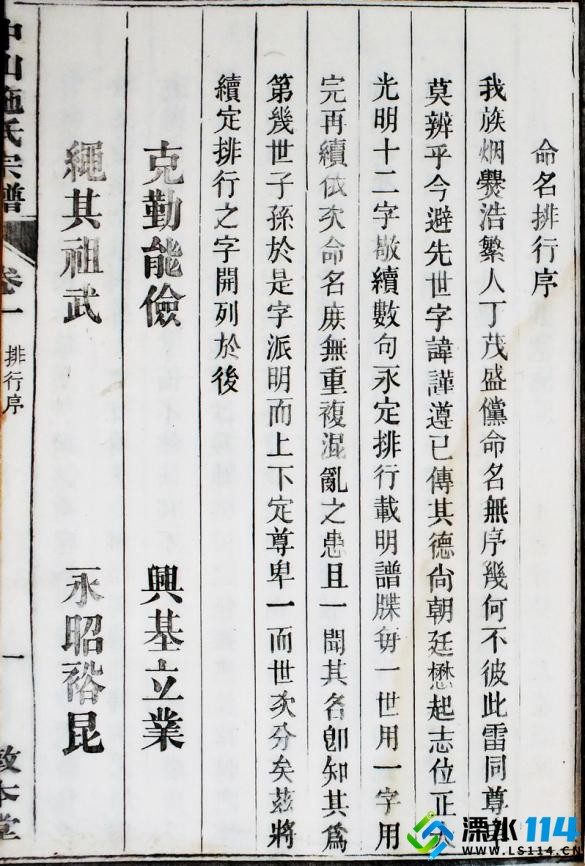 命名排行序
我族烟爨浩繁人丁茂盛儻命名無序幾何不彼此雷同尊卑
莫辨乎今避先世字諱謹遵已傳其德尚朝廷懋起志位正大
光明十二字敬續數句永定排行載明譜牒每一世用一字用
完再續依次命名庶無重複混亂之患且一聞其名卽知其爲
第幾世子孫於是字派明而上下定尊卑一而世次分矣茲將
續定排行之字開列於後
克勤能儉 興基立業
繩其祖武 永昭裕昆
中山施氏宗譜 卷一 排行序 一 敦本堂
溧水114
WWW.LS114.CN